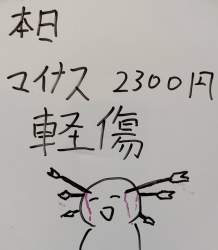 本日
マイナス 2300円
軽傷